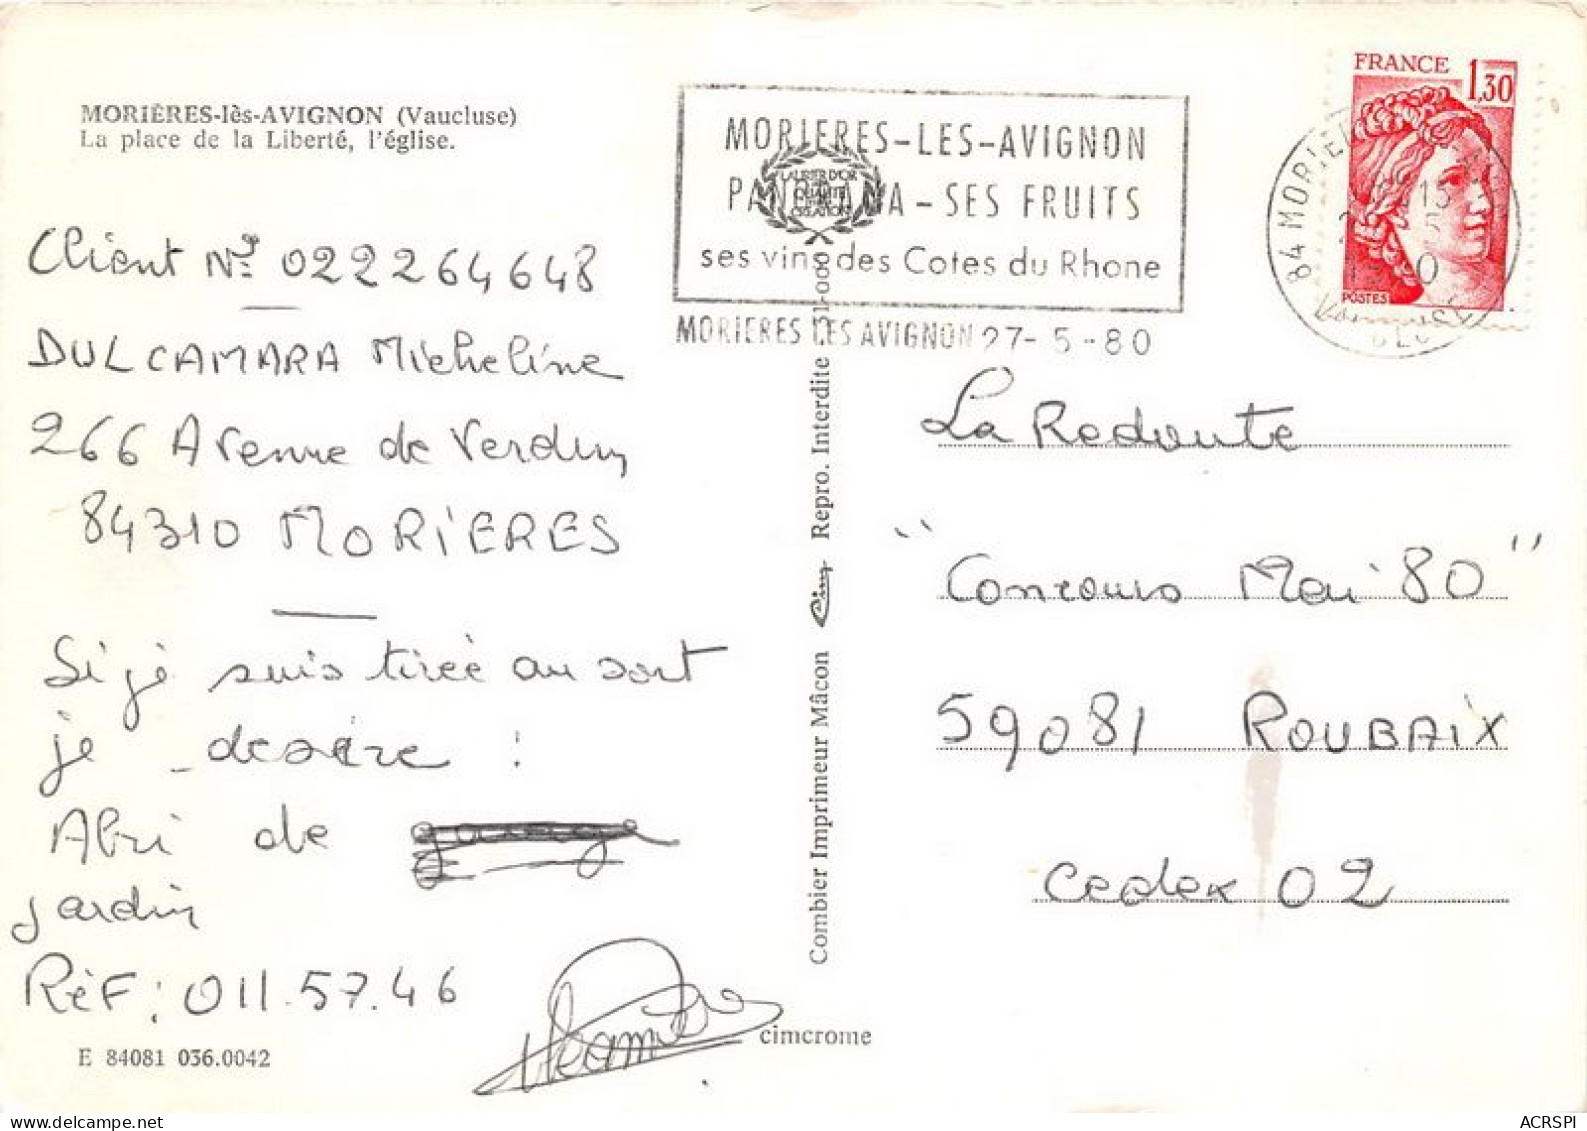 MORIÈRES-lès-AVIGNON (Vaucluse)
La place de la Liberté, l'église.
Client No 0222264648
DULCAMARA Micheline
266 Avenue de Verdun
84310 MORIERES
Si je suis tirée au sort
je desire :
Abri de
jardin
RéF : 011.57.46
E 84081 036.0042
MORIERES-LES-AVIGNON
PANORAMA - SES FRUITS
ses vins des Cotes du Rhone
MORIERES LES AVIGNON 27-5-80
LAURIER D'OR
QUALITÉ
CREATION
Combier Imprimeur Mâcon Cim Repro. Interdite
cimcrome
FRANCE 1,30
POSTES
La Redoute
"Concours Mai 80"
59081 ROUBAIX
Cedex 02
site du collectionneur : delcampe.net
ACRSPI